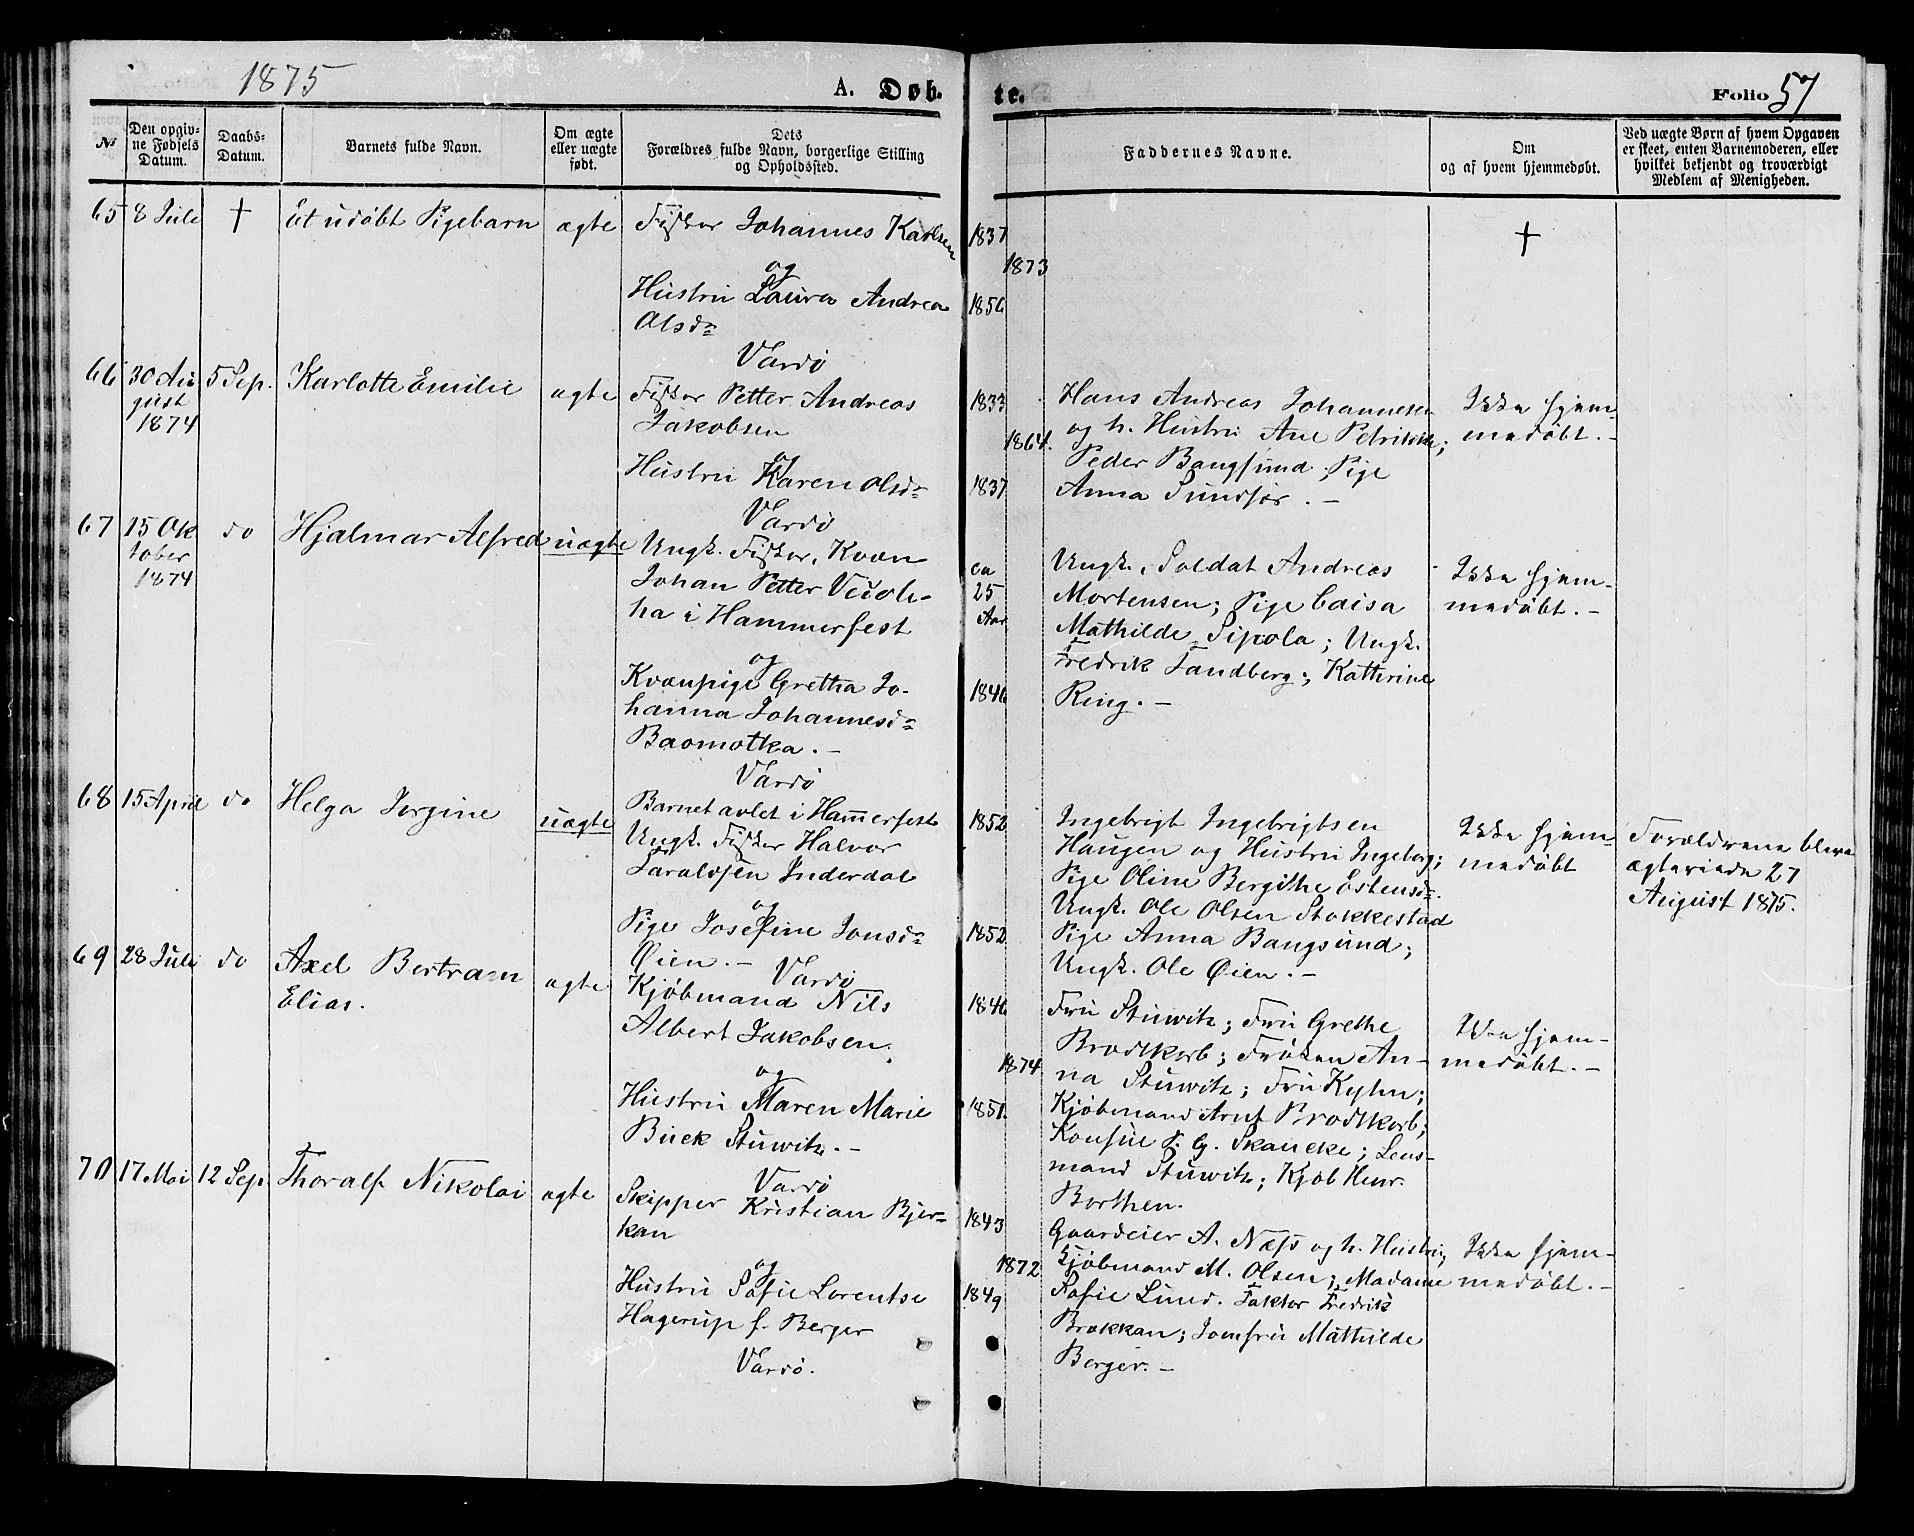 1875
A. Døb-
te.
Folio 57
№
Den opgiv-
ne Fødsels
Datum.
Daabs-
Datum.
Barnets fulde Navn.
Om ægte
eller uægte
født.
Dets
Forældres fulde Navn, borgerlige Stilling
og Opholdssted.
Faddernes Navne.
Om
og af hvem hjemmedøbt.
Ved uægte Børn af hvem Opgaven
er skeet, enten Barnemoderen, eller
hvilket bekjendt og troværdigt
Medlem af Menigheden.
65 8 Juli † Et udøbt Pigebarn ægte Fisker Johannes Karlsen 1837 †
og 1873
Hustru Laura Andrea 1856
Olsd.
Vardø
66 30 Au- 5 Sep. Karlotte Emilie ægte Fisker Petter Andreas 1833 Hans Andreas Johannesen Ikke hjem-
gust Jakobsen 1864. og h. Hustru Ane Petrikke; medøbt. –
1874 og Peder Bangsund; Pige
Hustru Karen Olsd. 1837 Anna Sundfør. –
Vardø
67 15 Ok- do Hjalmar Alfred uægte Ungk. Fisker, Kvæn ca Ungk. Soldat Andreas Ikke hjem-
tober Johan Petter 25 Mortensen; Pige Caisa medøbt. –
1874 ha i Hammerfest Aar Mathilde Sipola; Ungk.
og Fredrik Tandberg; Kathrine
Kvænpige Gretha Jo- 1846 Ring. –
hanna Johannesd.
Baomotka. –
Vardø
68 15 April do Helga Jørgine uægte Barnet avlet i Hammerfest 1852 Ingebrigt Ingebrigtsen Ikke hjem- Forældrene bleve
Ungk. Fisker Halvor Haugen og Hustru Ingeborg; medøbt ægteviede 27
Taraldsen Inderdal Pige Oline Bergithe Estensd. August 1875.
og Ungk. Ole Olsen Stokkestad
Pige Josefine Jonsd. 1852 Pige Anna Bangsund;
Øien. – Ungk. Ole Øien. –
Vardø
69 28 Juli do Axel Bertram ægte Kjøbmand Nils 1846 Fru Stuwitz; Fru Grethe Ikke hjem-
Elias. Albert Jakobsen. Brodtkorb; Frøken An- medøbt. –
og 1874 na Stuwitz; Fru Kyhn;
Hustru Maren Marie 1851. Kjøbmand Arnt Brodtkorb;
Buck Stuwitz. – Konsul P. G. Skancke; Lens-
mand Stuwitz; Kjøb Henr.
Vardø Borthen.
70 17 Mai 12 Sep. Thoralf Nikolai ægte Skipper Kristian Bjer- 1843 Gaardeier A. Næss og h. Hustru; Ikke hjem-
kan 1872 Kjøbmand M. Olsen; Madame medøbt. –
og Sofie Lund. Faktor Fredrik
Hustru Sofie Lorentse 1849 Brækkan; Jomfru Mathilde
Hagerup f. Berger Berger. –
Vardø.